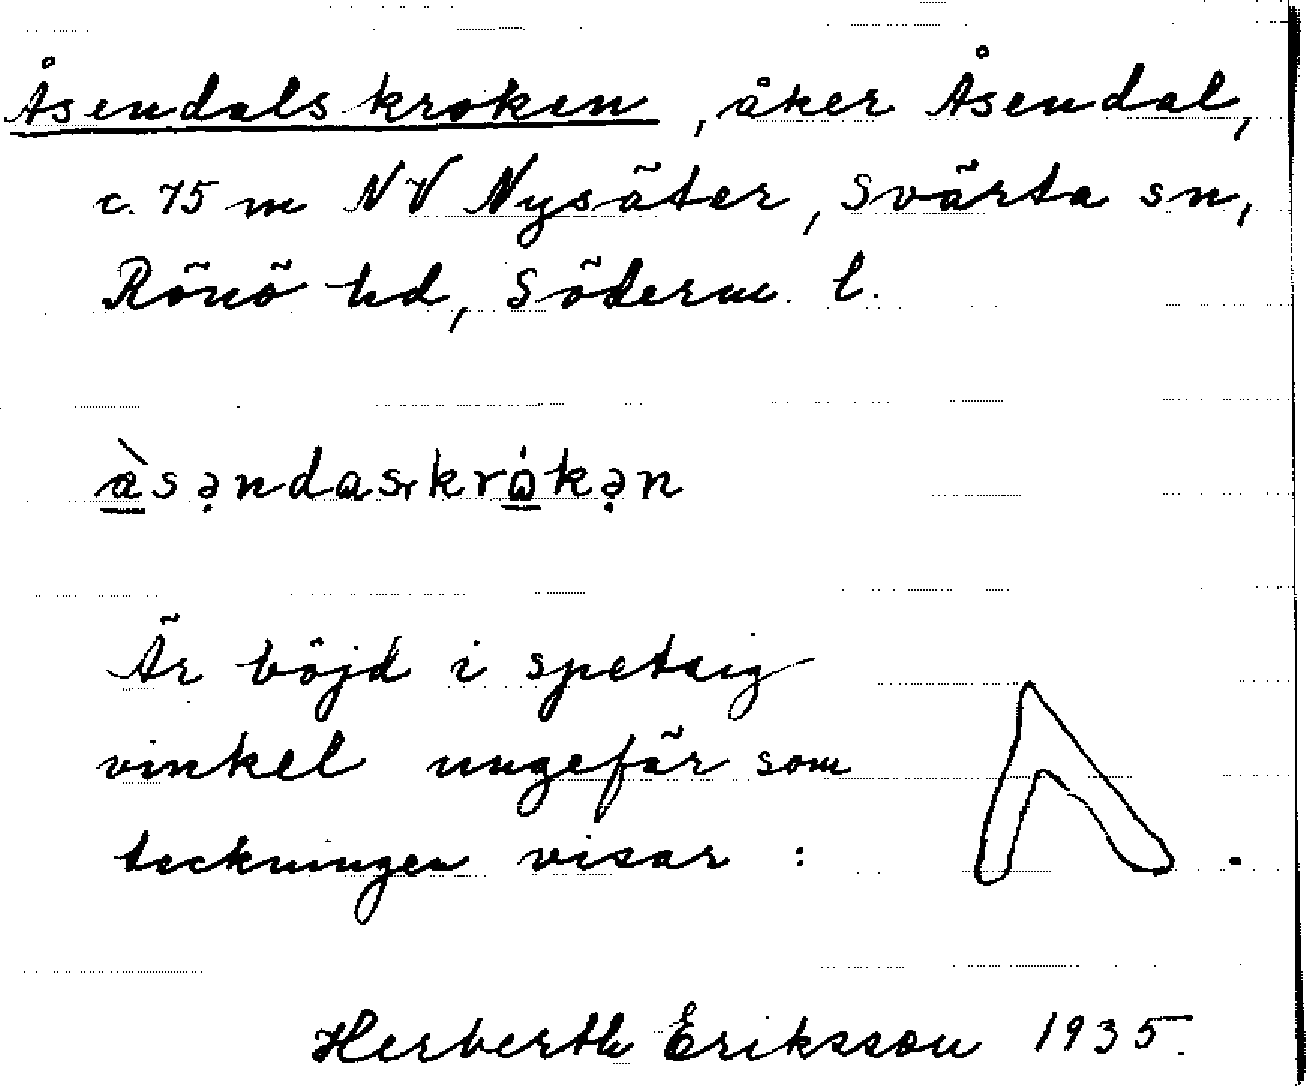 Åsendalskroken, åker Åsendal,
c. 75 m NV Nysäter, Svärta sn,
Rönö hd, Söderm. l.
àsəndaskrókən
Är böjd i spetsig
vinkel ungefär som
teckningen visar :
Herberth Eriksson 1935.